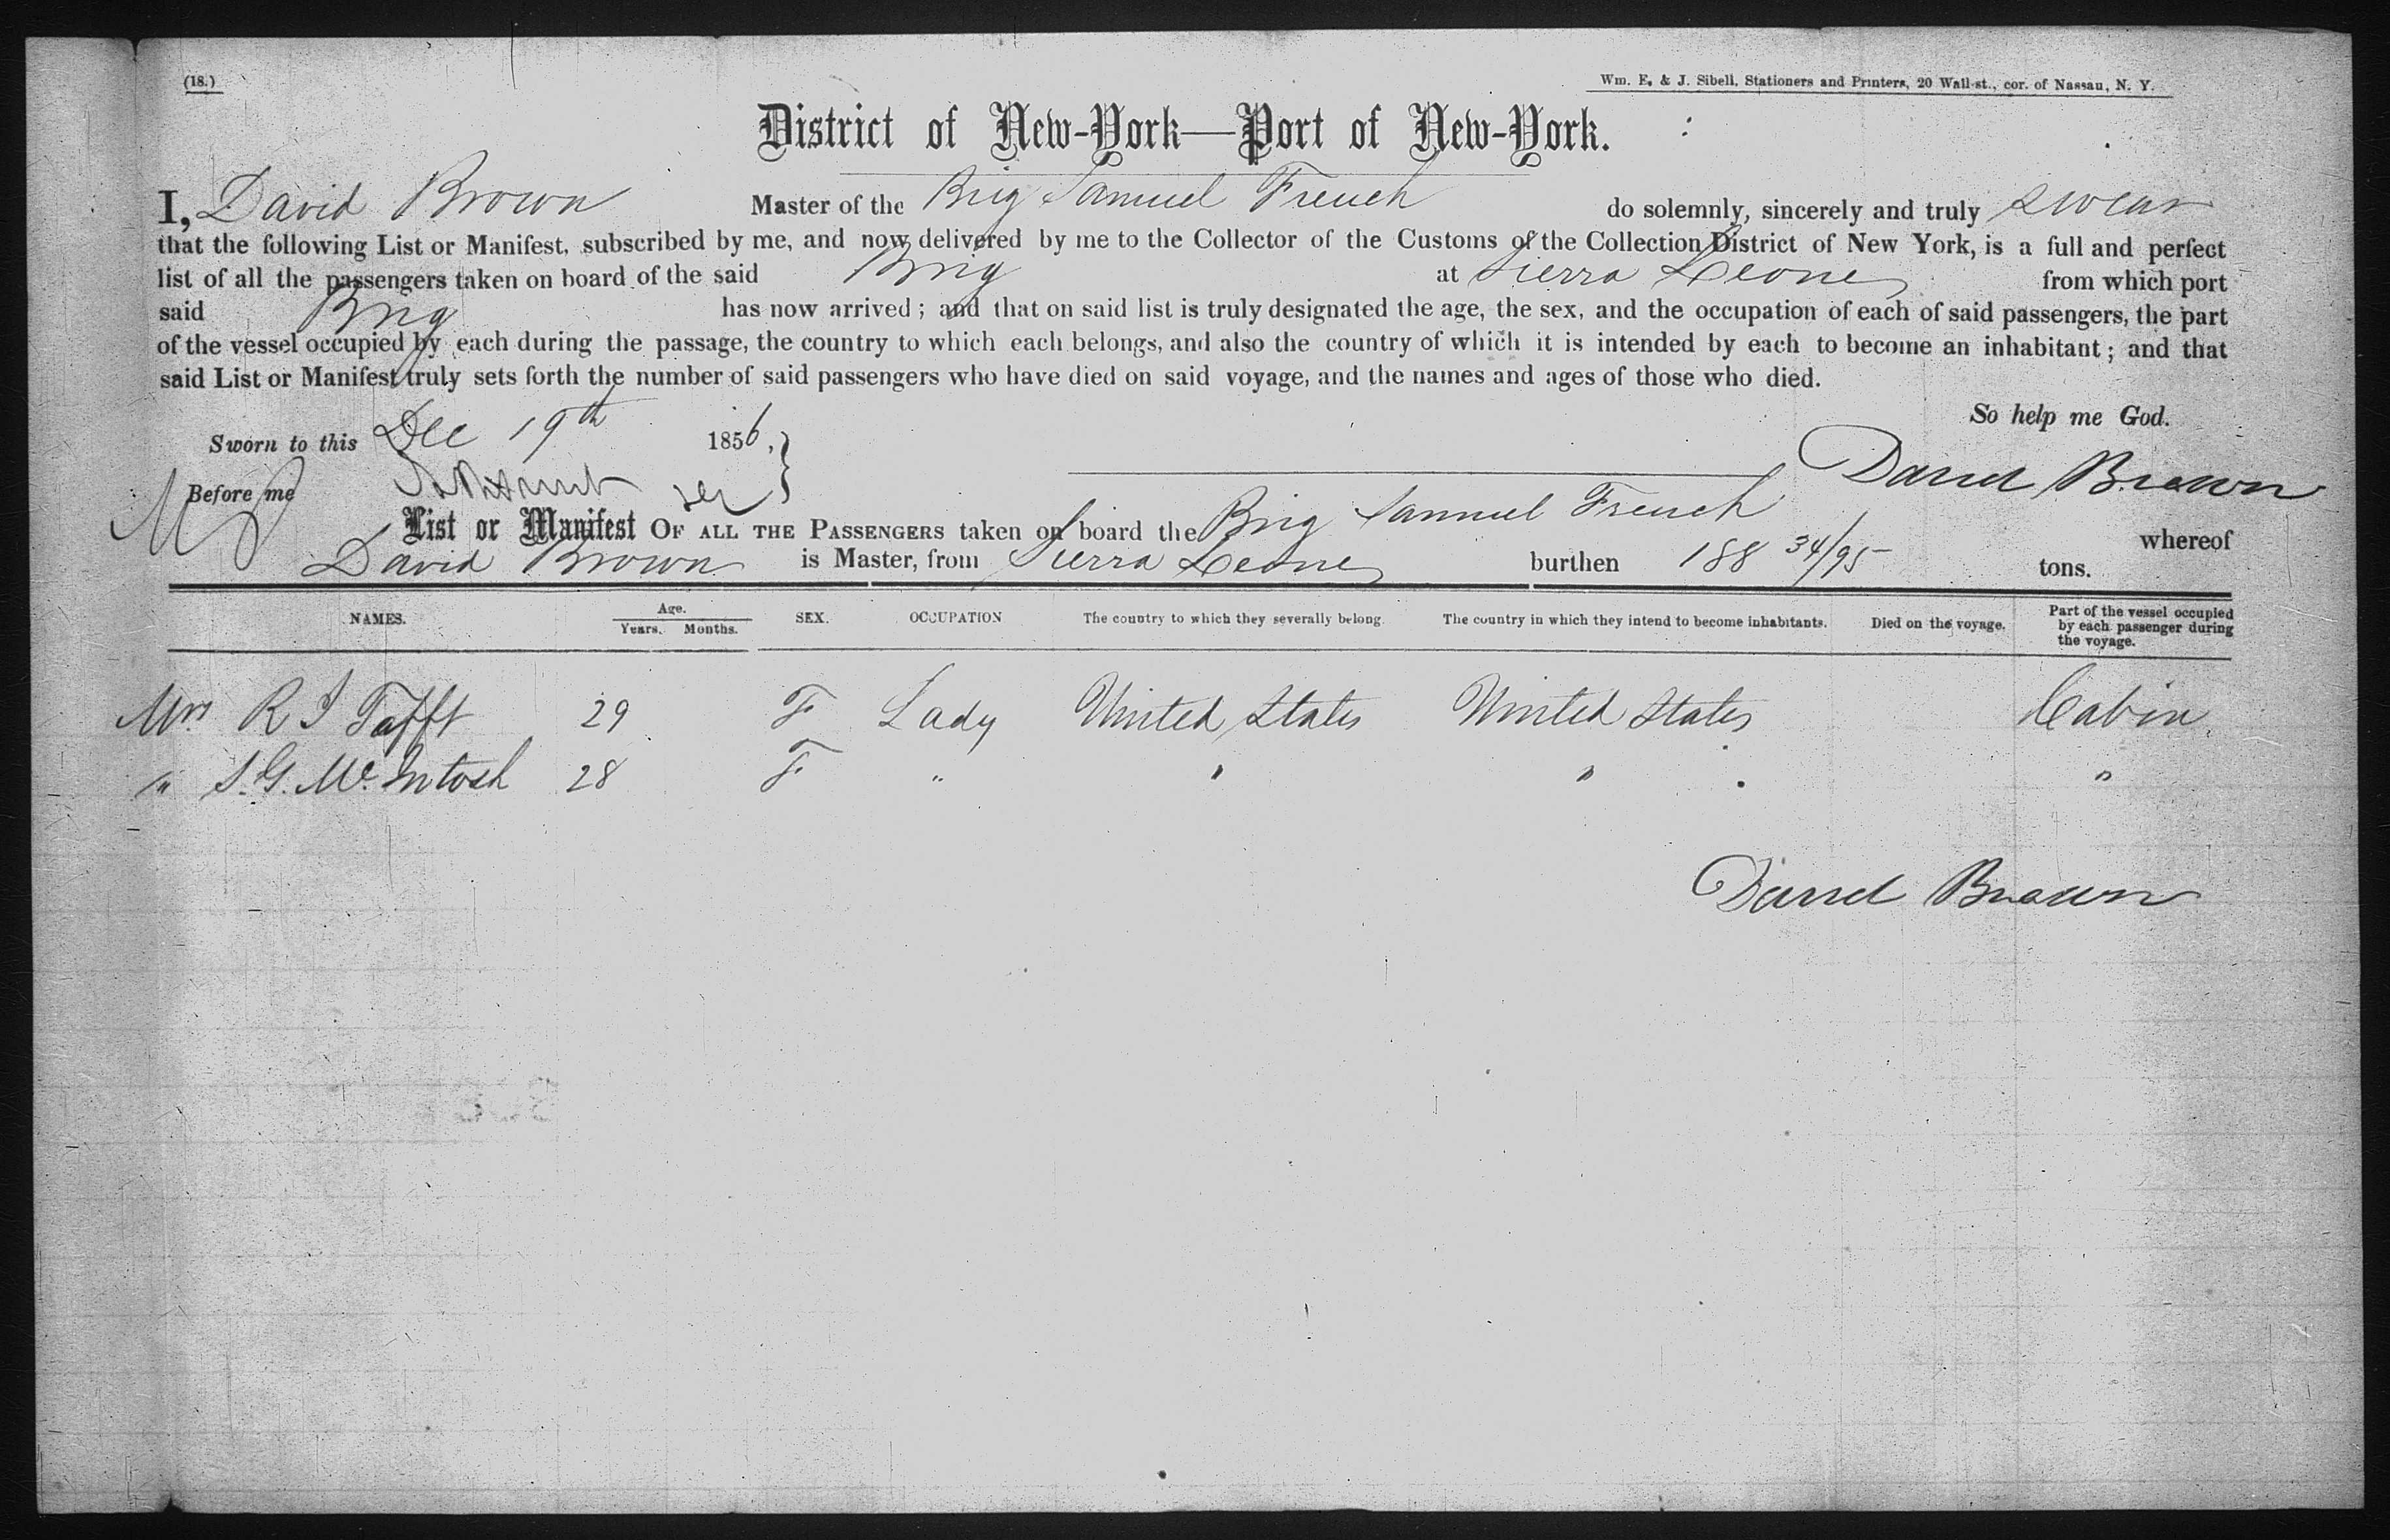 (18.)
Wm. E. & J. Sibell, Stationers and Printers, 20 Wall-st., cor. of Nassau, N. Y.
District of New-York—Port of New-York.
I, David Brown Master of the Brig Samuel French do solemnly, sincerely and truly swear
that the following List or Manifest, subscribed by me, and now delivered by me to the Collector of the Customs of the Collection District of New York, is a full and perfect
list of all the passengers taken on board of the said Brig at Sierra Leone from which port
said Brig has now arrived; and that on said list is truly designated the age, the sex, and the occupation of each of said passengers, the part
of the vessel occupied by each during the passage, the country to which each belongs, and also the country of which it is intended by each to become an inhabitant; and that
said List or Manifest truly sets forth the number of said passengers who have died on said voyage, and the names and ages of those who died.
So help me God.
Sworn to this Dec 19th 1856,
David Brown
Before me
List or Manifest OF ALL THE PASSENGERS taken on board the Brig Samuel French whereof
David Brown is Master, from Sierra Leone burthen 188 34/95 tons.
NAMES. Age. Years. Months. SEX. OCCUPATION The country to which they severally belong. The country in which they intend to become inhabitants. Died on the voyage. Part of the vessel occupied by each passenger during the voyage.
Mrs R J Tafft 29 F Lady United States United States Cabin
" S. G. McIntosh 28 F " " " "
David Brown